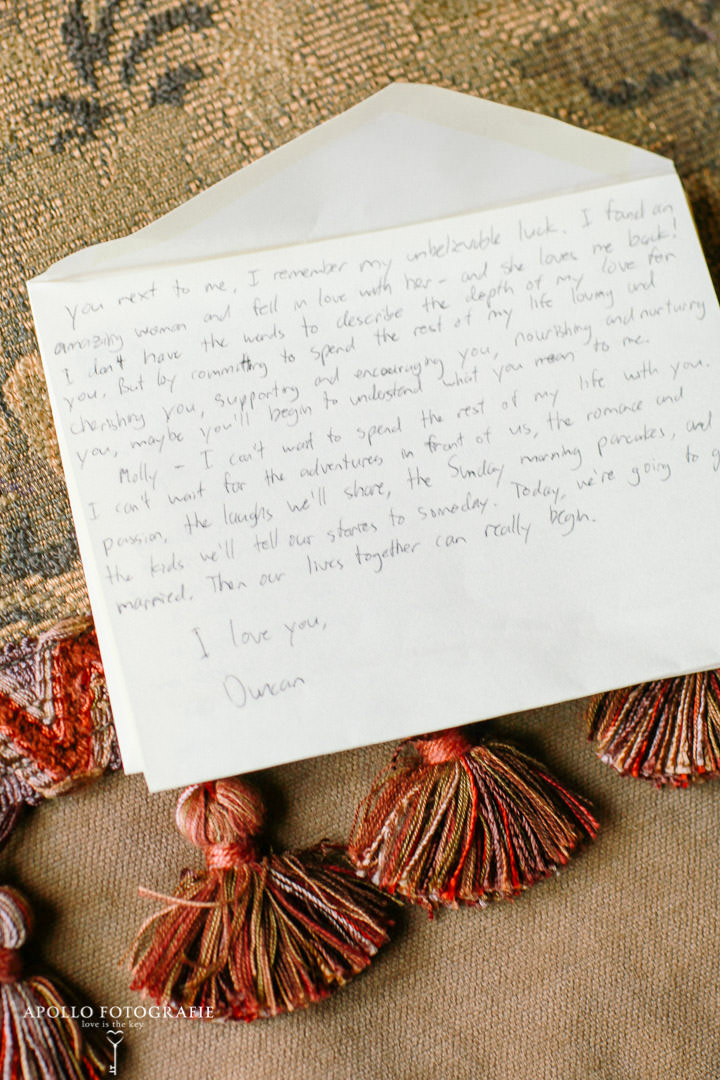 you next to me, I remember my unbelievable luck. I found an
amazing woman and fell in love with her - and she loves me back!
I don't have the words to describe the depth of my love for
you. But by committing to spend the rest of my life loving and
cherishing you, supporting and encouraging you, nourishing and nurturing
you, maybe you'll begin to understand what you mean to me.
Molly - I can't wait to spend the rest of my life with you.
I can't wait for the adventures in front of us, the romance and
passion, the laughs we'll share, the Sunday morning pancakes, and
the kids we'll tell our stories to someday. Today, we're going to g
married. Then our lives together can really begin.
I love you,
Duncan
APOLLO FOTOGRAFIE
love is the key